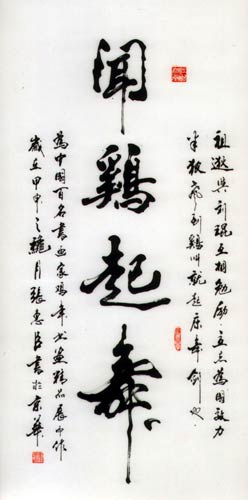 祖逖與刘琨互相勉励立志為国效力
半夜听到鷄叫就起床舞剑也
聞鷄起舞
為中國百名書画家鷄年书画精品展而作
歲在甲申之臘月張惠臣書於京華